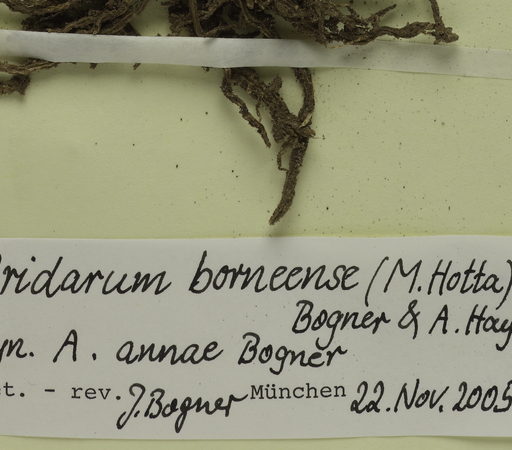 ridarum borneense (M. Hotta)
Bogner & A. Hay
yn. A. annae Bogner
et. - rev. J. Bogner München 22. Nov. 2005